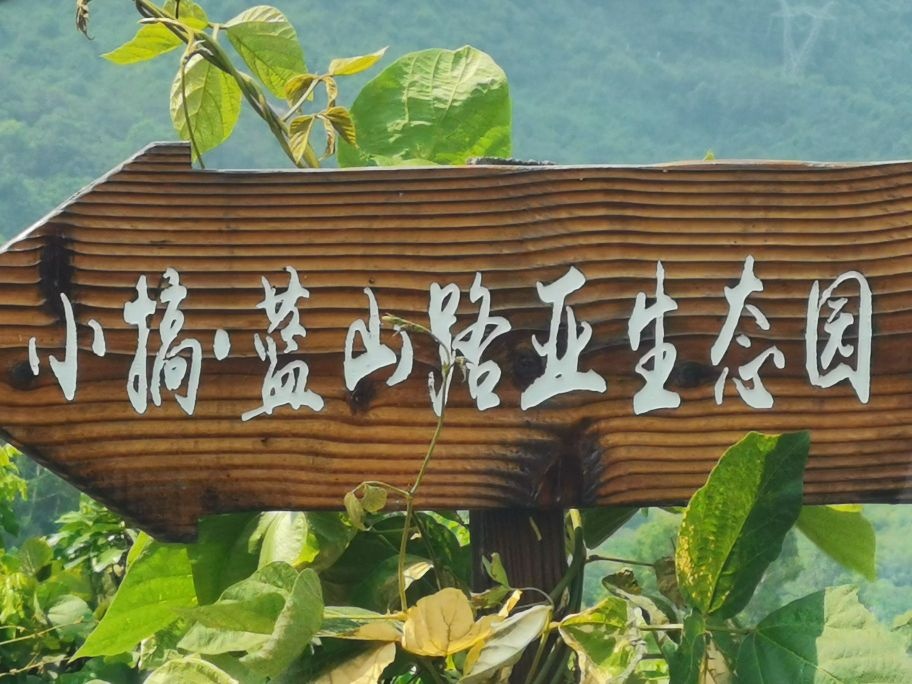 小摘·蓝山路亚生态园